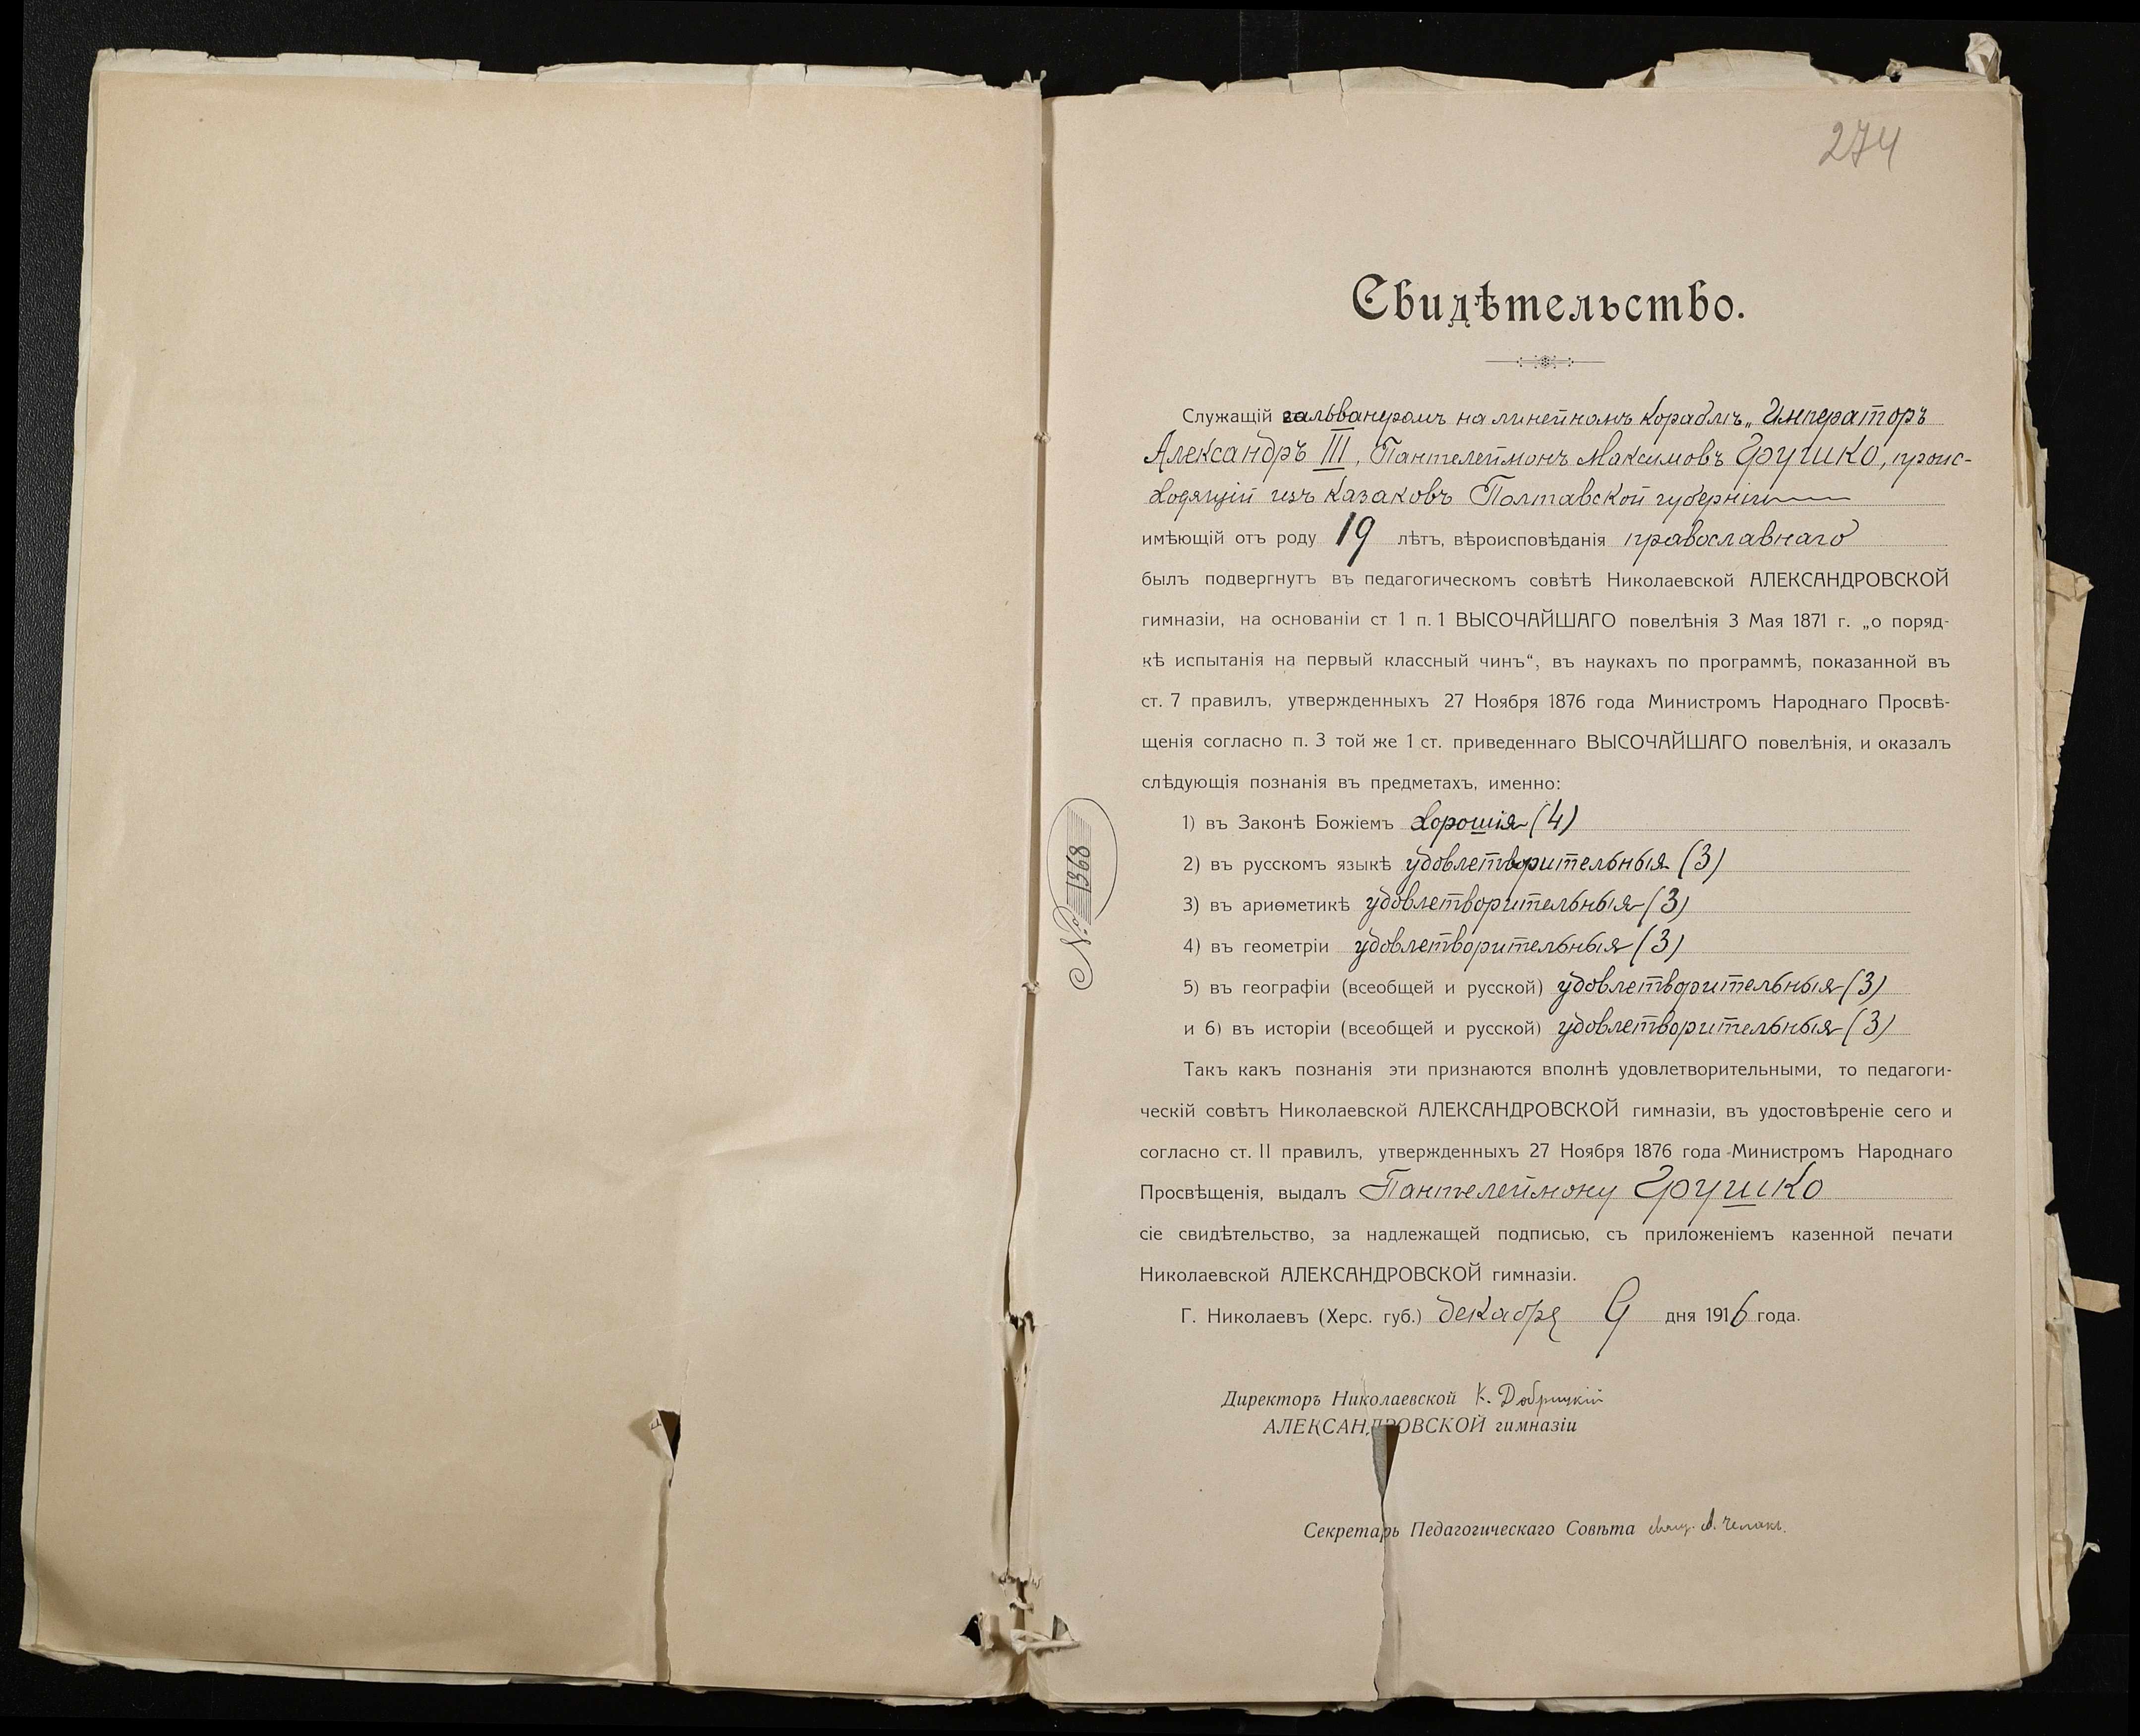 274
Свидѣтельство.
Служащій гальванеромъ на линейномъ кораблѣ „Императоръ
Александръ III, Пантелеймонъ Максимовъ Грушко, проис-
ходящій изъ казаковъ Полтавской губерніи
имѣющій отъ роду 19 лѣтъ, вѣроисповѣданія православнаго
былъ подвергнутъ въ педагогическомъ совѣтѣ Николаевской АЛЕКСАНДРОВСКОЙ
гимназіи, на основаніи ст 1 п. 1 ВЫСОЧАЙШАГО повелѣнія 3 Мая 1871 г. „о поряд-
кѣ испытанія на первый классный чинъ“, въ наукахъ по программѣ, показанной въ
ст. 7 правилъ, утвержденныхъ 27 Ноября 1876 года Министромъ Народнаго Просвѣ-
щенія согласно п. 3 той же 1 ст. приведеннаго ВЫСОЧАЙШАГО повелѣнія, и оказалъ
слѣдующія познанія въ предметахъ, именно:
1) въ Законѣ Божіемъ хорошія (4)
2) въ русскомъ языкѣ удовлетворительныя (3)
3) въ ариѳметикѣ удовлетворительныя (3)
4) въ геометріи удовлетворительныя (3)
5) въ географіи (всеобщей и русской) удовлетворительныя (3)
и 6) въ исторіи (всеобщей и русской) удовлетворительныя (3)
№ 1368
Такъ какъ познанія эти признаются вполнѣ удовлетворительными, то педагоги-
ческій совѣтъ Николаевской АЛЕКСАНДРОВСКОЙ гимназіи, въ удостовѣреніе сего и
согласно ст. II правилъ, утвержденныхъ 27 Ноября 1876 года Министромъ Народнаго
Просвѣщенія, выдалъ Пантелеймону Грушко
сіе свидѣтельство, за надлежащей подписью, съ приложеніемъ казенной печати
Николаевской АЛЕКСАНДРОВСКОЙ гимназіи.
Г. Николаевъ (Херс. губ.) декабря 9 дня 1916 года.
Директоръ Николаевской К. Добрицкій
АЛЕКСАНДРОВСКОЙ гимназіи
Секретарь Педагогическаго Совѣта